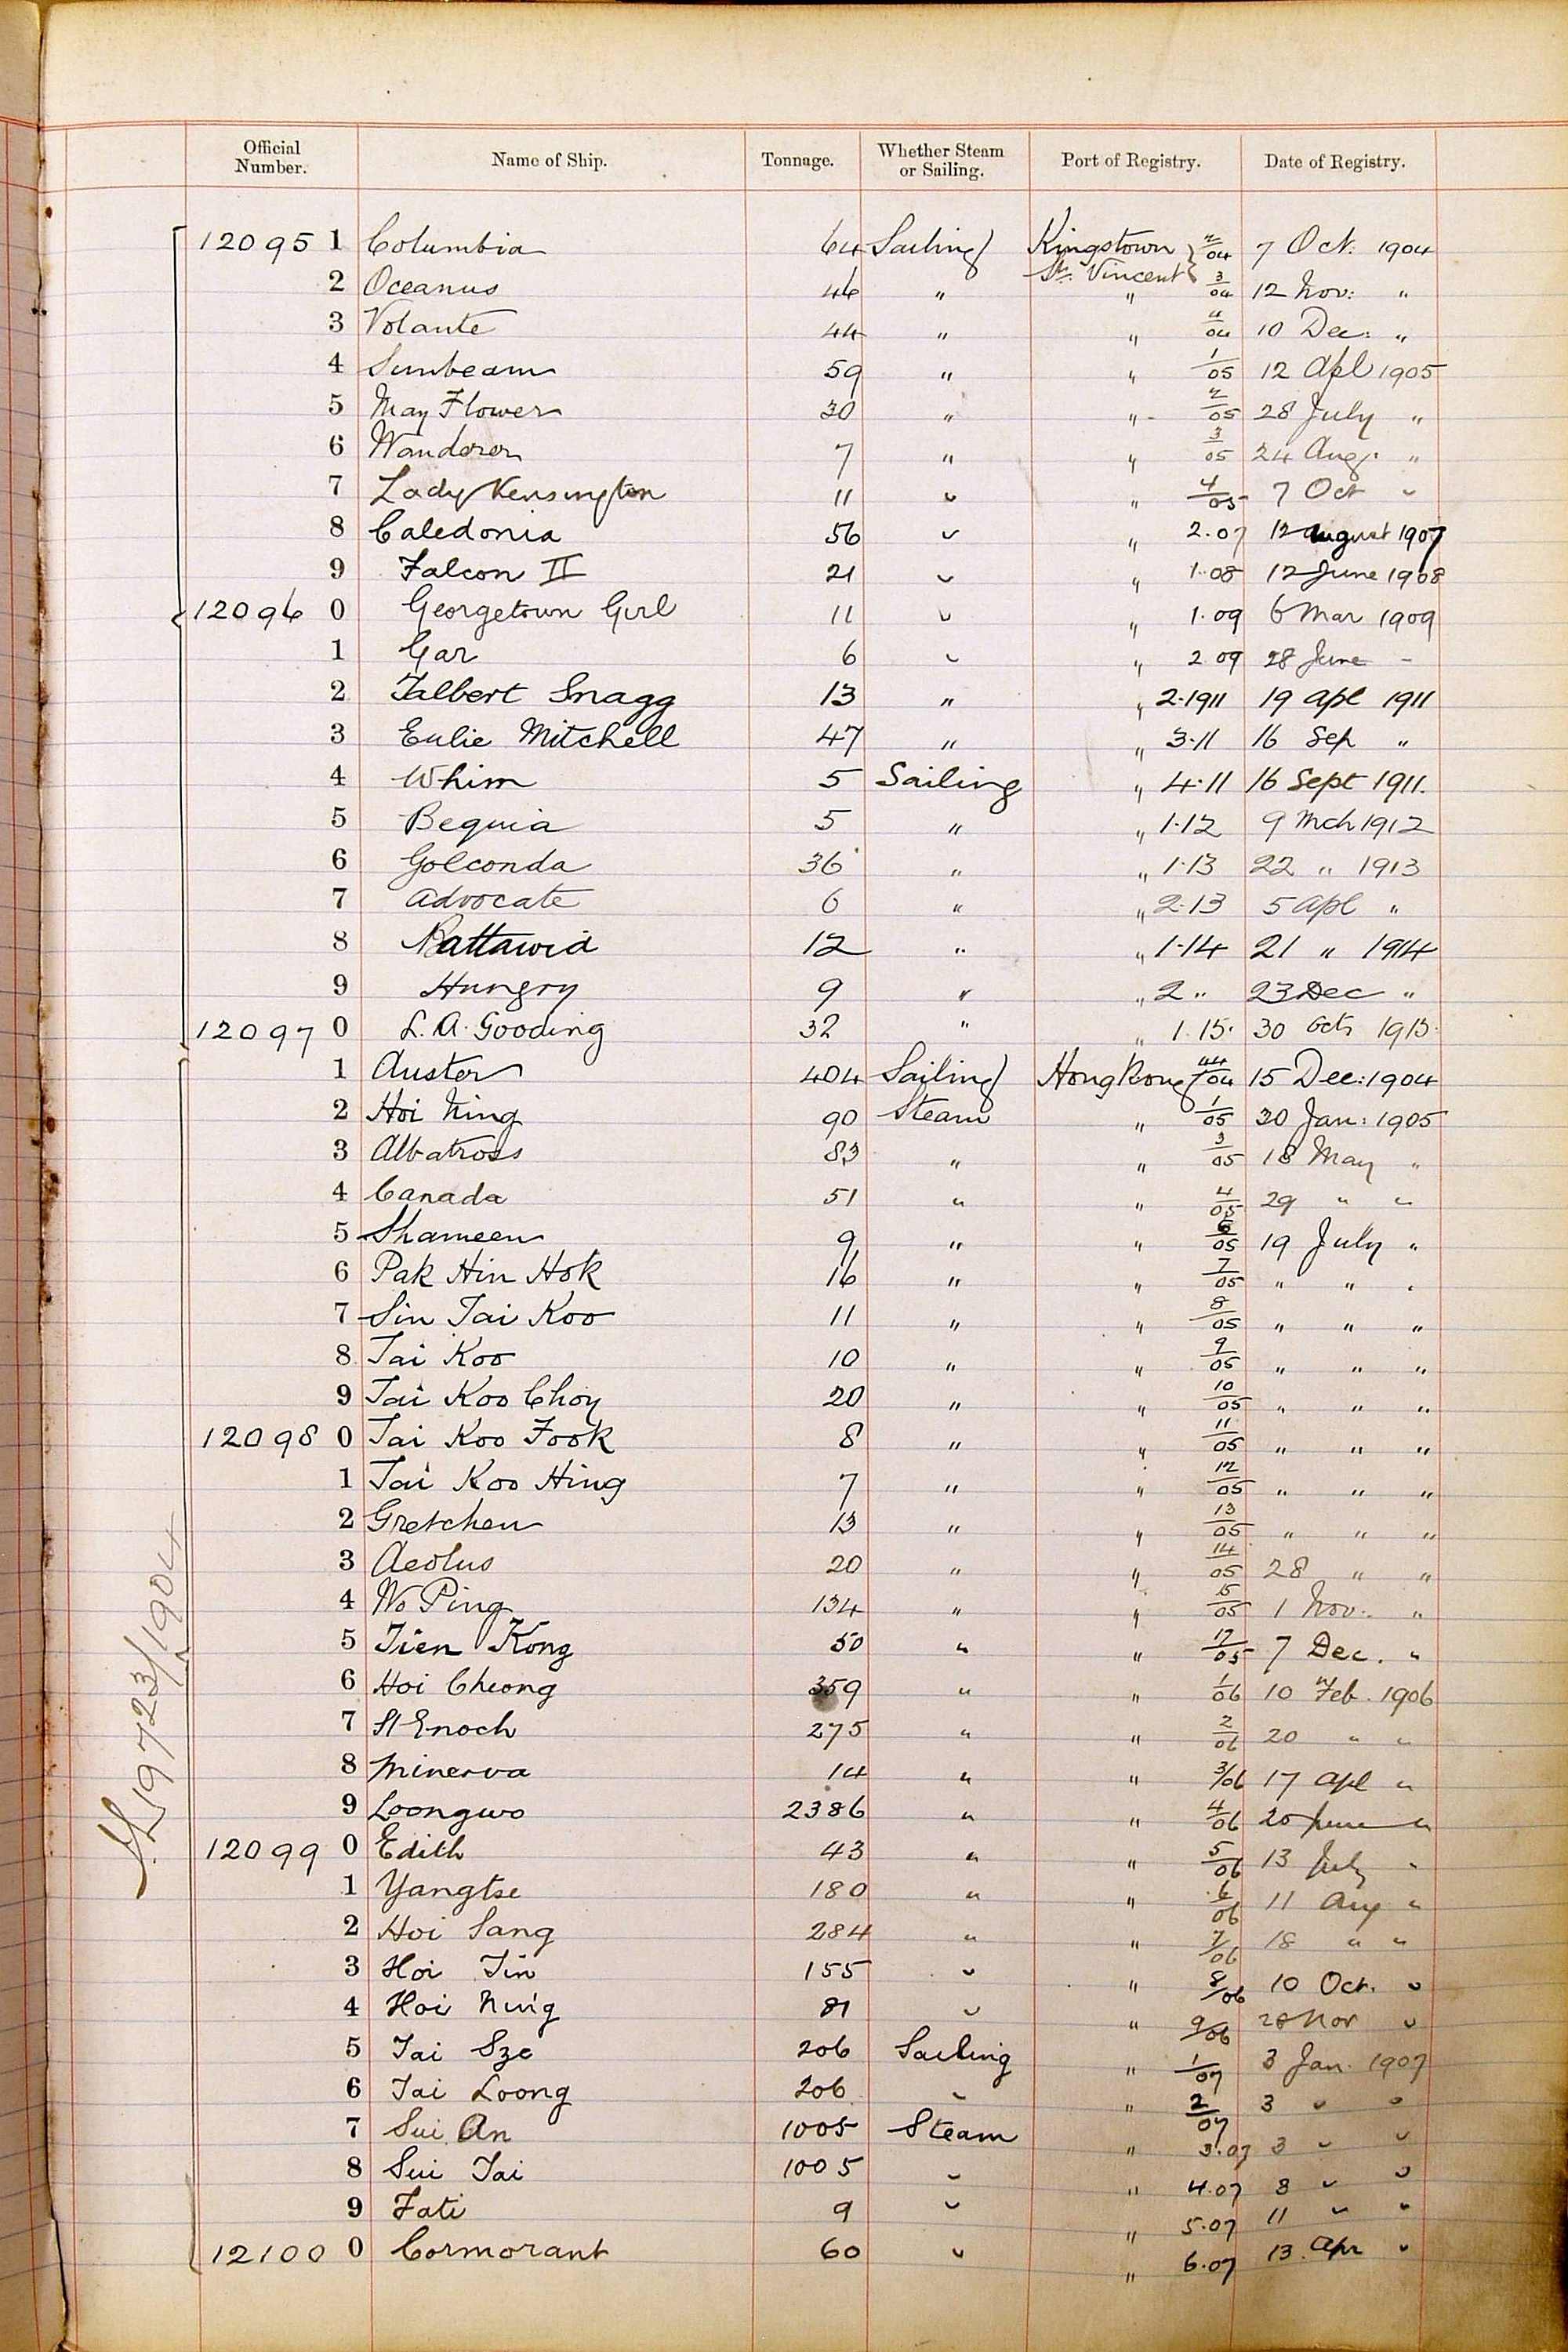 Official Number. Name of Ship. Tonnage. Whether Steam or Sailing. Port of Registry. Date of Registry.
12095 1 Columbia 64 Sailing Kingstown St. Vincent 2/04 7 Oct: 1904
2 Oceanus 46 " " 3/04 12 Nov: "
3 Volante 44 " " 4/04 10 Dec: "
4 Sunbeam 59 " " 1/05 12 Apl 1905
5 May Flower 30 " " 2/05 28 July "
6 Wanderer 7 " " 3/05 24 Aug: "
7 Lady Kensington 11 " " 4/05 7 Oct "
8 Caledonia 56 " " 2.07 12 August 1907
9 Falcon II 21 " " 1.08 12 June 1908
12096 0 Georgetown Girl 11 " " 1.09 6 Mar 1909
1 Gar 6 " " 2.09 28 June -
2 Talbert Snagg 13 " " 2.1911 19 Apl 1911
3 Eulie Mitchell 47 " " 3.11 16 Sep "
4 Whim 5 Sailing " 4.11 16 Sept 1911.
5 Bequia 5 " " 1.12 9 Mch 1912
6 Golconda 36 " " 1.13 22 " 1913
7 Advocate 6 " " 2.13 5 Apl "
8 12 " " 1.14 21 " 1914
9 Hungry 9 " " 2 " 23 Dec "
12097 0 L. A. Gooding 32 " " 1.15. 30 Oct 1915.
1 Auster 404 Sailing HongKong 44/04 15 Dec: 1904
2 Hoi Ning 90 Steam " 1/05 30 Jan: 1905
3 Albatross 83 " " 3/05 18 May "
4 Canada 51 " " 4/05 29 " "
5 Shameen 9 " " 6/05 19 July "
6 Pak Hin Hok 16 " " 7/05 " " "
7 Sin Tai Koo 11 " " 8/05 " " "
8 Tai Koo 10 " " 9/05 " " "
9 Tai Koo Choy 20 " " 10/05 " " "
12098 0 Tai Koo Fook 8 " " 11/05 " " "
1 Tai Koo Hing 7 " " 12/05 " " "
2 Gretchen 13 " " 13/05 " " "
3 Aeolus 20 " " 14/05 28 " "
4 Wo Ping 134 " " 15/05 1 Nov: "
5 Tien Kong 50 " " 17/05 7 Dec. "
6 Hoi Cheong 359 " " 1/06 10 Feb. 1906
7 St Enoch 275 " " 2/06 20 " "
8 Minerva 14 " " 3/06 17 Apl "
9 Loongwo 2386 " " 4/06 20 June "
12099 0 Edith 43 " " 5/06 13 July "
1 Yangtse 180 " " 6/06 11 Aug "
2 Hoi Sang 284 " " 7/06 18 " "
3 Hoi Tin 155 " " 8/06 10 Oct. "
4 Hoi Ning 81 " " 9/06 28 Nov "
5 Tai Sze 206 Sailing " 1/07 3 Jan. 1907
6 Tai Loong 206 " " 2/07 3 " "
7 Sui An 1005 Steam " 3.07 3 " "
8 Sui Tai 1005 " " 4.07 8 " "
9 Fati 9 " " 5.07 11 " "
12100 0 Cormorant 60 " " 6.07 13. Apr "
19723/1904